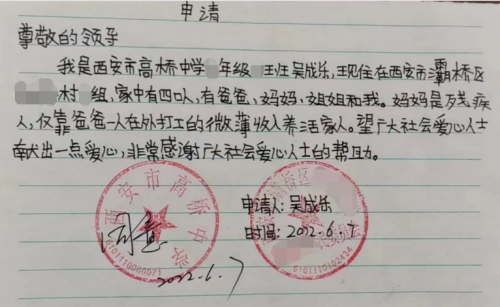 申请
尊敬的领导
我是西安市高桥中学 年级 班 吴成乐,现住在西安市灞桥区
村 组,家中有四口人,有爸爸、妈妈、姐姐和我。妈妈是残疾
人,仅靠爸爸一人在外打工的微薄收入养活家人。望广大社会爱心人士
献出一点爱心,非常感谢广大社会爱心人士的帮助。
西安市高桥中学
6101110060071
同意
2022.6.7
申请人:吴成乐
时间:2022.6.7
6101110102434